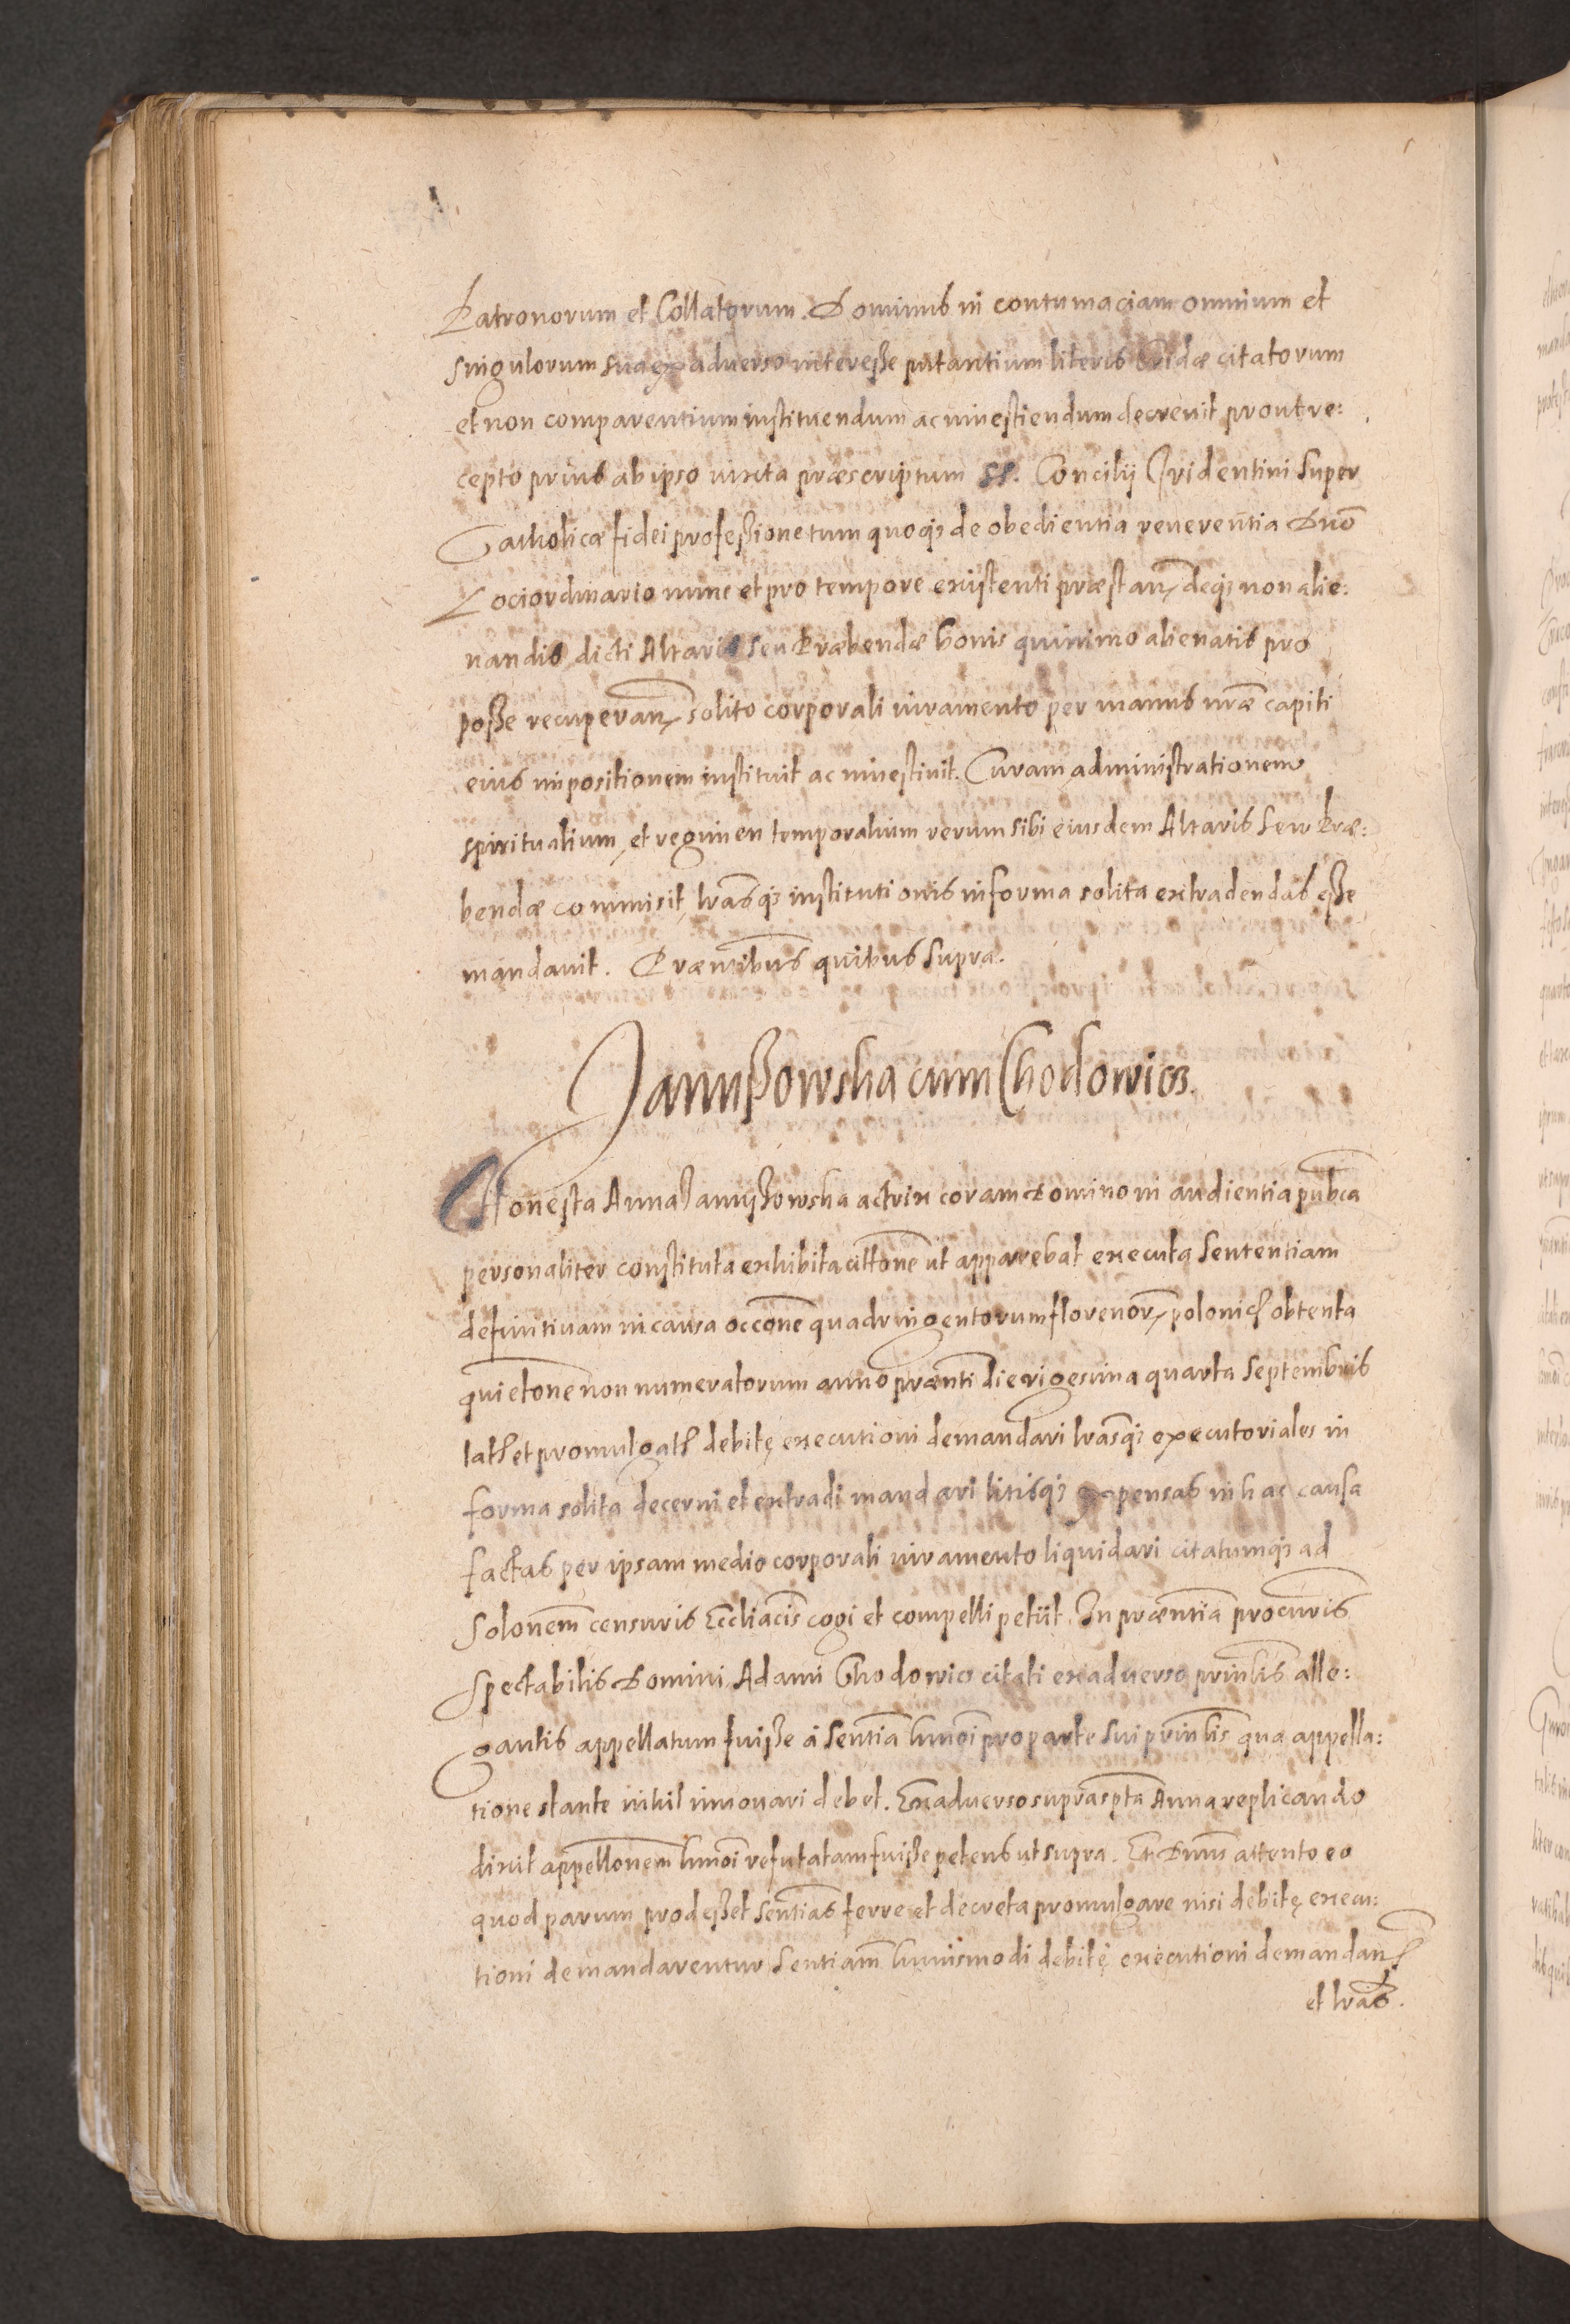 Patronorum et Collatorum. Dominus in contumaciam omnium et
singulorum sua ex adverso interesse putantium literis Cridae citatorum
et non comparentium instituendum ac investiendum decrevit prout re:
cepto prius ab ipso iuxta praescriptum SS. Concilij Tridentini super
Catholicae fidei professione tum quoqꝫ de obedientia reverentia Dno͞
Loci ordinario nunc et pro tempore existenti praestan͞ deqꝫ non alie:
nandis dicti Altaris seu Praebendae bonis quinimo alienatis pro
posse recuperan͞ solito corporali iuramento per manus nr͞ae capiti
eius impositionem instituit ac investivit. Curam administrationem
spiritualium, et regimen temporalium rerum sibi eiusdem Altaris seu Prae:
bendae commisit, lr͞asqꝫ institutionis in forma solita extradendas esse
mandavit. Prae͞ntibus quibus supra.
Janußowska cum Chodowicz.
Honesta Anna Janußowska actrix coram Domino in audientia pub͞ca
personaliter constituta exhibita citt͞one ut apparebat executa Sententiam
definitivam in causa occ͞one quadringentorum florenor͞ polonicł obtenta
quiet͞one non numeratorum anno prae͞nti die vigesima quarta Septembris
latł et promulgatł debitę executioni demandari lr͞asqꝫ executoriales in
forma solita decerni et extradi mandari litisqꝫ expensas in hac causa
factas per ipsam medio corporali iuramento liquidari citatumqꝫ ad
Sol͞onem censuris Eccl͞iacis cogi et compelli petiit. In prae͞ntia procu͞ris
Spectabilis Domini Adami Chodowicz citati ex adverso prin͞lis alle:
gantis appellatum fuisse à Sen͞tia hm͞oi pro parte sui prin͞lis qua appella:
tione stante nihil innovari debet. Ex adverso supras͞pta Anna replicando
dixit appell͞onem hm͞oi refutatam fuisse petens ut supra. Et Dn͞us attento eo
quod parum prodesset sen͞tias ferre et decreta promulgare nisi debitę execu:
tioni demandarentur Senti͞am huiusmodi debitę executioni demandan͞
et lr͞as.